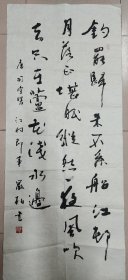 釣罷歸來不系船江邨
月落正堪眠縱然一夜風吹
去只在蘆花淺水邊
唐司空曙江村即事